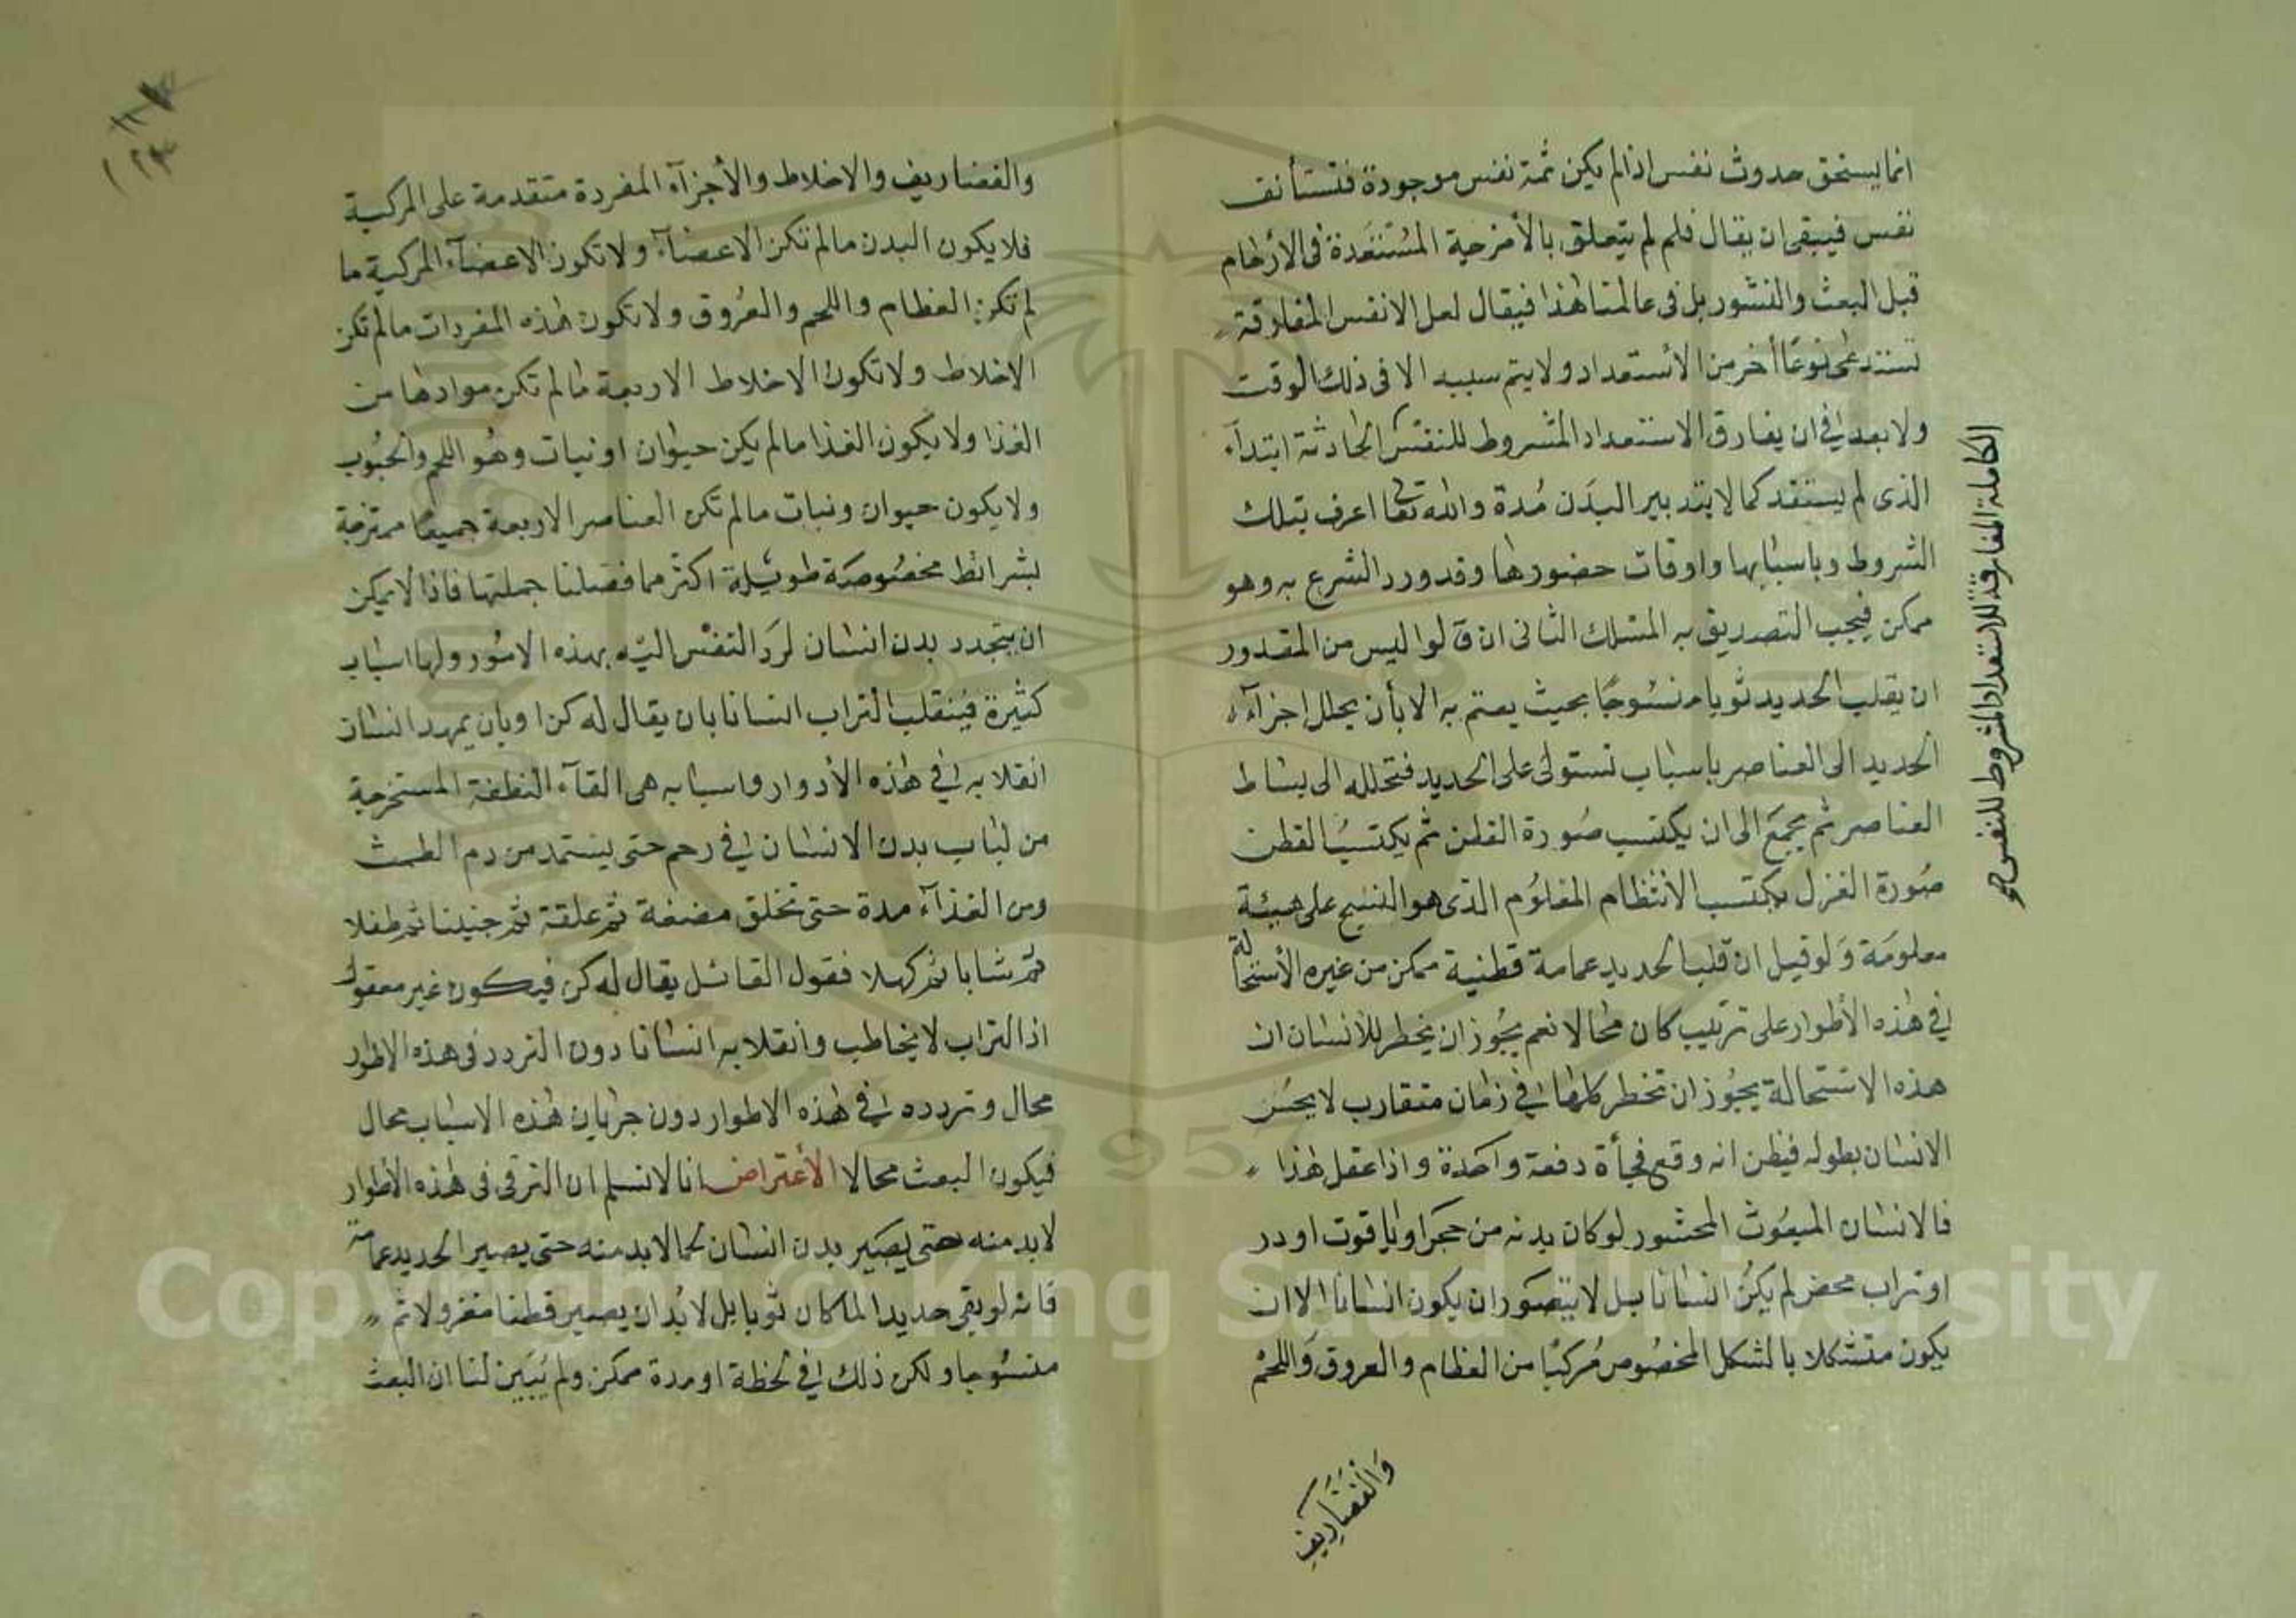 انما يستحق حدوث نفس اذا لم يكن ثمة نفس موجودة فتستأنف
نفس فيبقى ان يقال فلم لم يتعلق بالأمزجة المستعدة فى الارحام
قبل البعث والنشور بل فى عالمنا هذا فيقال لعل الانفس المفارقة
تستدعى نوعا أخر من الأستعداد ولا يتم سببه الا فى ذلك الوقت
ولا بعد فى ان يفارق الاستعداد المشروط للنفس الحادثة ابتدآء
الذى لم يستفد كما لا يتدبير البدن مدة والله تعا اعرف بتلك
الشروط وباسبابها واوقات حضورها وقد ورد الشرع به وهو
ممكن فيجب التصديق به المسلك الثانى ان قالوا ليس من المقدور
ان يقلب الحديد ثوبا منسوجا بحيث يعتم به الا بأن يحلل اجزآء
الحديد الى العناصر باسباب تستولى على الحديد فتحلله الى بساط
العناصر ثم يجمع الى ان يكتسب صورة القطن ثم يكتسب القطن
صورة الغزل يكتسب الأنتظام المعلوم الذى هو النسج على هيئة
معلومة ولو قيل ان قلب الحديد عمامة قطنية ممكن من غيره الأستحالة
فى هذه الأطوار على ترتيب كان محالا نعم يجوز ان يخطر للأنسان ان
هذه الاستحالة يجوز ان تخطر كلها فى زمان متقارب لا يحس
الانسان بطوله فيظن انه وقع فجأة دفعة واحدة واذا عقل هذا
فالانسان المبعوث المحشور لو كان بدنه من حجر او ياقوت او در
او تراب محض لم يكن انسانا بل لا يتصور ان يكون انسانا الا ان
يكون متشكلا بالشكل المخصوص مركبا من العظام والعروق واللحم
والغضاريف
الكاملة المفارقة للاستعداد المشروط للنفس
والغضاريف والاخلاط والأجزآء المفردة متقدمة على المركبة
فلا يكون البدن مالم تكن الاعضآء ولا تكون الاعضآء المركبة ما
لم تكن العظام واللحم والعروق ولا تكون هذه المفردات مالم تكن
الاخلاط ولا تكون الاخلاط الاربعة مالم تكن موادها من
الغذا ولا يكون الغذا مالم يكن حيوان او نبات وهو اللحم والحبوب
ولا يكون حيوان ونبات مالم تكن العناصر الاربعة جميعا ممتزجة
بشرائط مخصوصة طويلة اكثر مما فصلنا جملتها فاذا لا يمكن
ان يتجدد بدن انسان لرد النفس اليه بهذه الامور ولها اسباب
كثيرة فينقلب التراب انسانا بان يقال له كن او بان يمهد انسان
انقلابه فى هذه الأدوار واسبابه هى القآء النطفة المستخرجة
من لباب بدن الانسان فى رحم حتى يستمد من دم الطمث
ومن الغذآء مدة حتى تخلق مضغة ثم علقة ثم جنينا ثم طفلا
ثم شابا ثم كهلا فقول القائل يقال له كن فيكون غير معقول
اذ التراب لا يخاطب وانقلابه انسانا دون التردد فى هذه الاطوار
محال وتردده فى هذه الاطوار دون جريان هذه الاسباب محال
فيكون البعث محالا الأعتراض انا لانسلم ان الترقى فى هذه الأطوار
لابد منه حتى يصير بدن انسان كما لابد منه حتى يصير الحديد عمامة
فانه لو بقى حديدا لما كان ثوبا بل لابد ان يصير قطنا مغزولا ثم
منسوجا ولكن ذلك فى لحظة او مدة ممكن ولم يبين لنا ان البعث